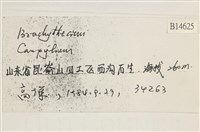 B14625
Brachythecium
Campylium
山东省昆嵛山 工区西沟石生. 海拔 260m.
高谦, 1984.9.29, 34263